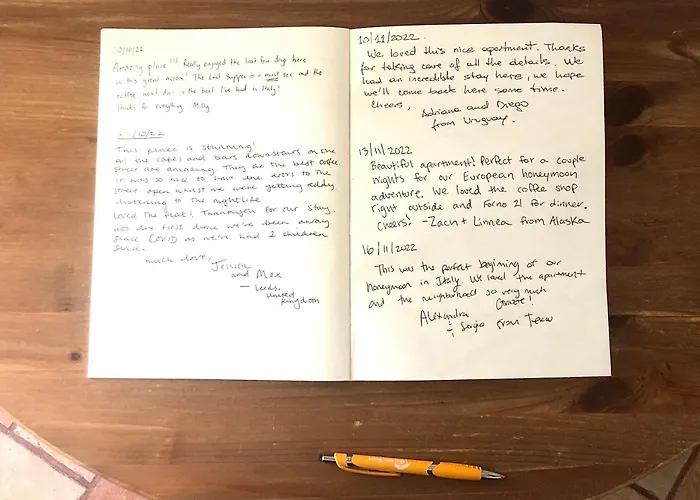 /10/22
Amazing place!!! Really enjoyed the last few days here
in this great Airbnb! The Last Supper is a must see and the
coffee next door is the best I've had in Italy!
Thanks for everything Milly
/10/22
This place is stunning!
All the cafes and bars downstairs on the
street are amazing. They do the best coffee.
It was so nice to have the doors to the
street open whilst we were getting ready,
listening to the nightlife.
Loved the flat! Thankyou for our stay,
was the first time we've been away
since COVID as we've had 2 children
since.
much love,
Jessica
and Max
– Leeds,
United
Kingdom
10/11/2022.
We loved this nice apartment. Thanks
for taking care of all the details. We
had an incredible stay here, we hope
we'll come back here some time.
Cheers,
Adriana and Diego
from Uruguay.
13/11/2022
Beautiful apartment! Perfect for a couple
nights for our European honeymoon
adventure. We loved the coffee shop
right outside and Forno 21 for dinner.
Cheers! -Zach + Linnea from Alaska
16/11/2022
This was the perfect beginning of our
honeymoon in Italy. We loved the apartment
and the neighborhood so very much
Grazie!
Alexandra
& Sergio From